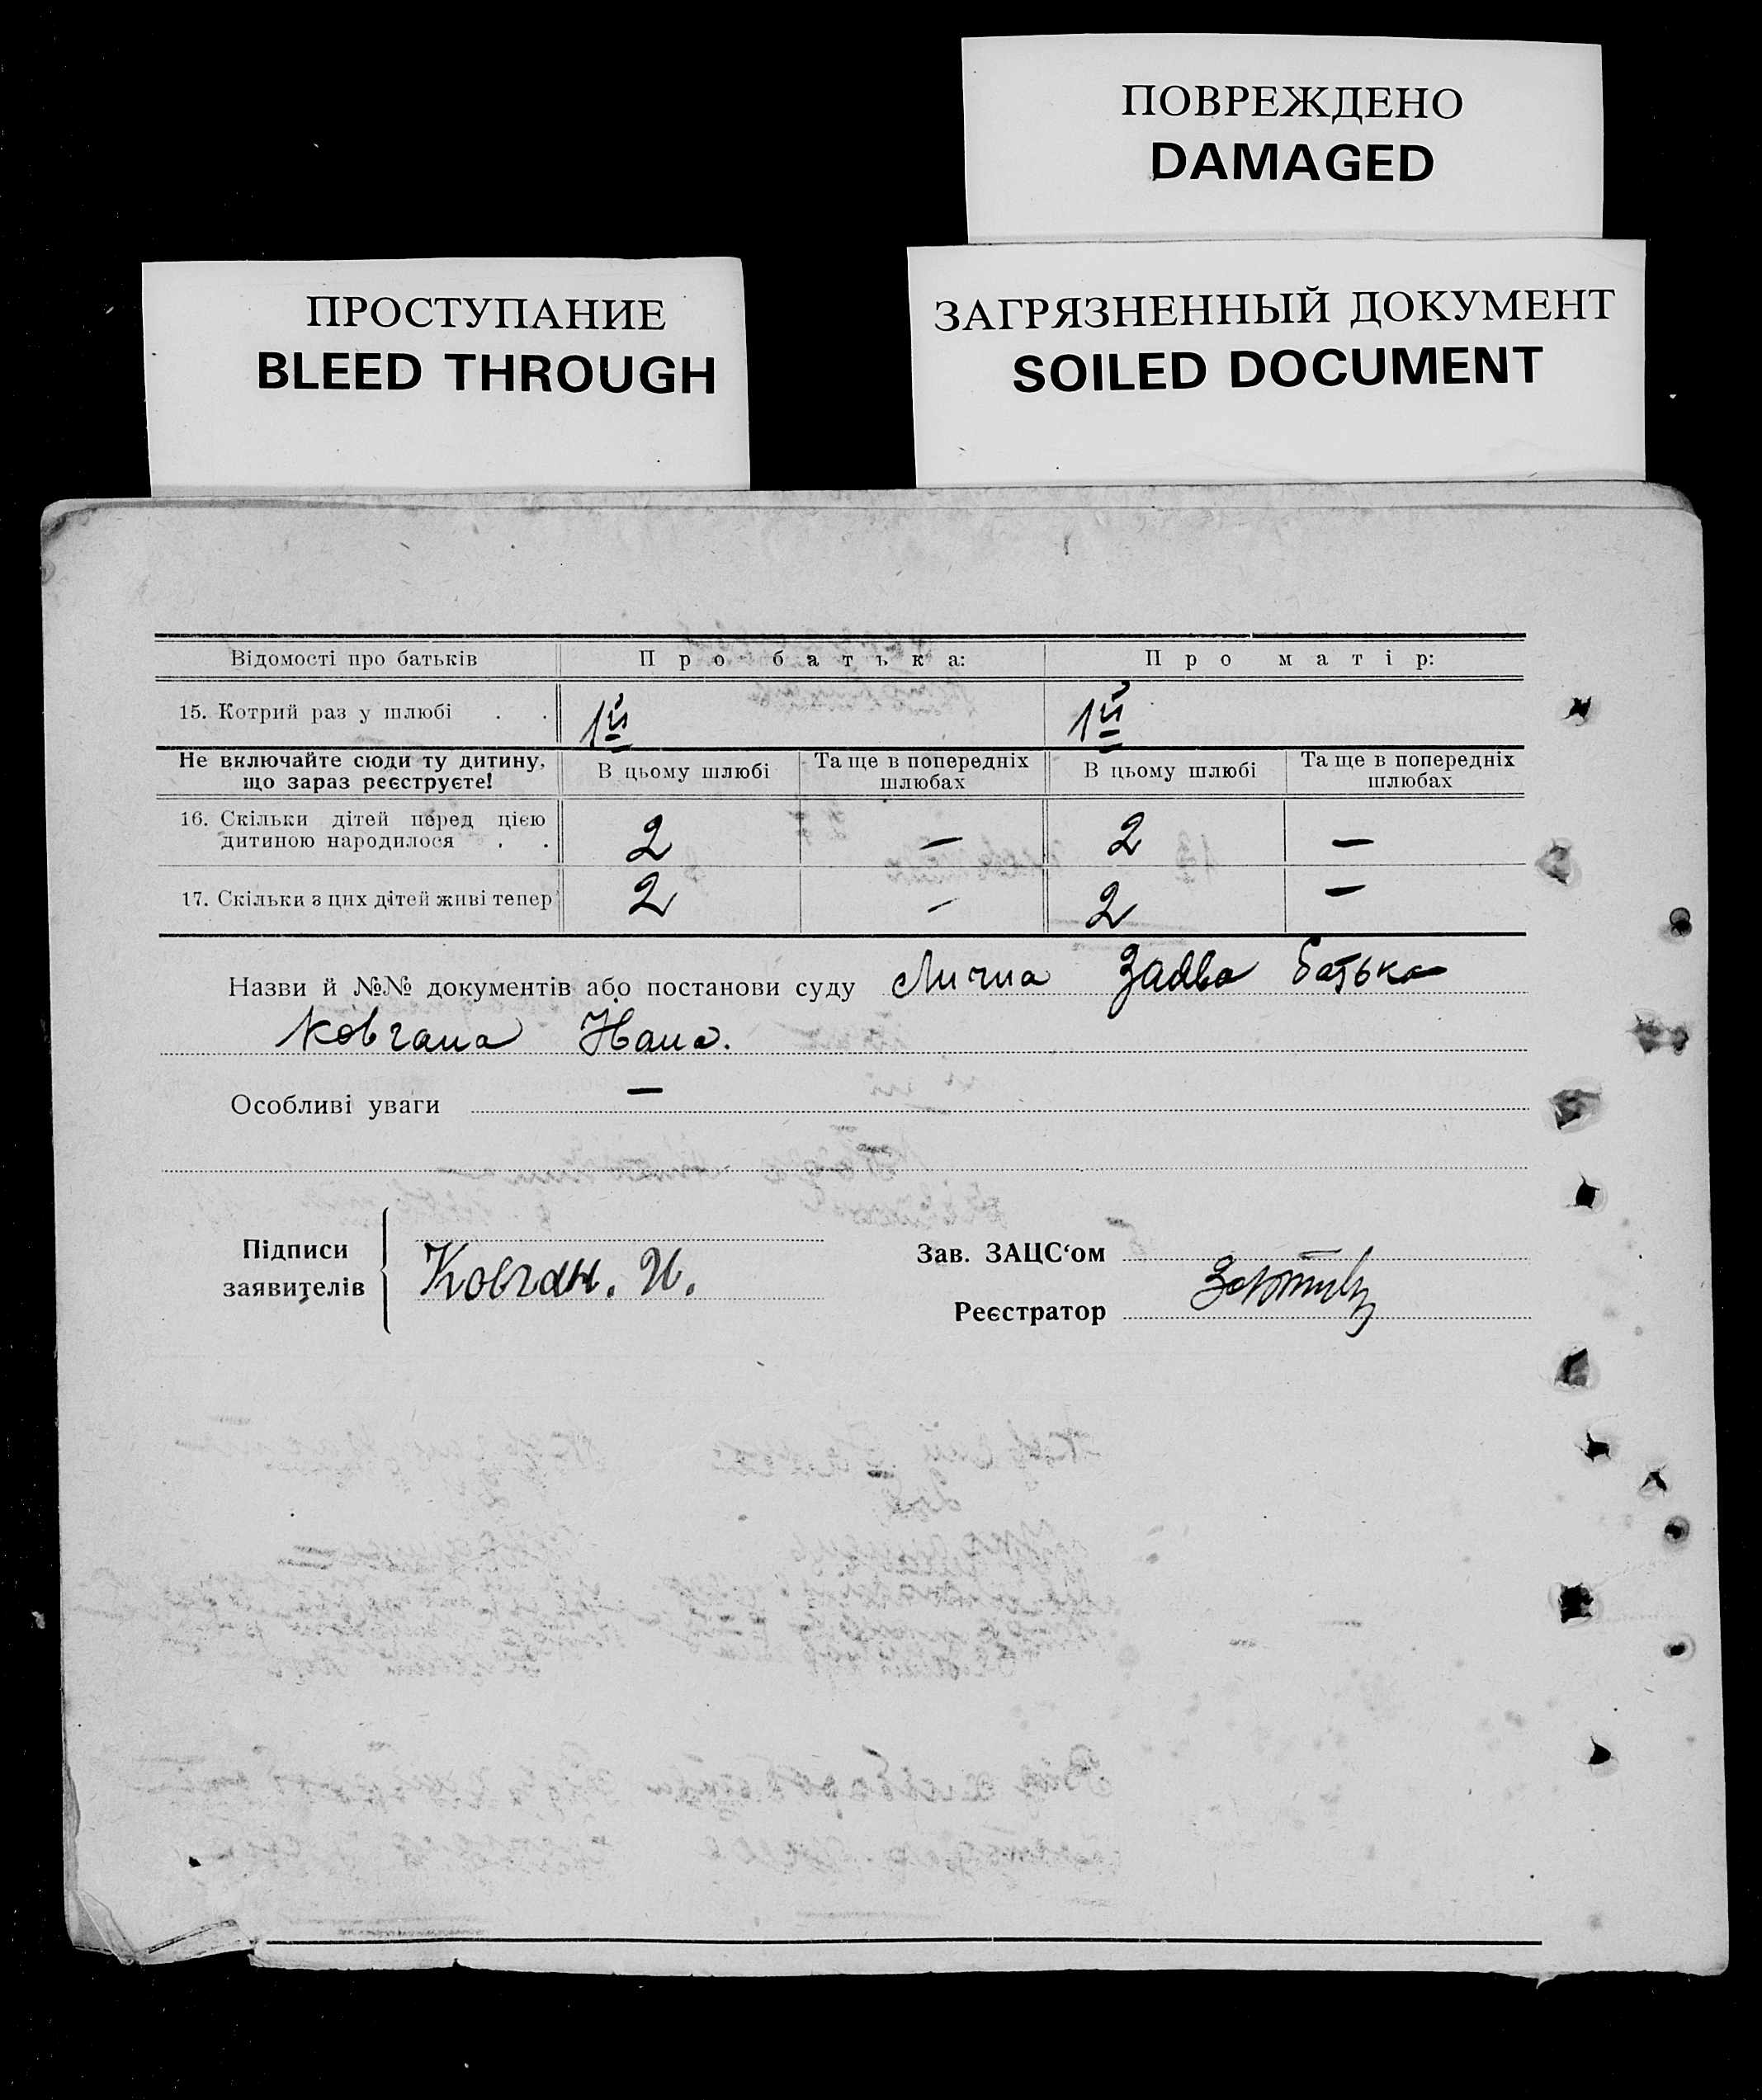 ПОВРЕЖДЕНО
DAMAGED
ПРОСТУПАНИЕ
BLEED THROUGH
ЗАГРЯЗНЕННЫЙ ДОКУМЕНТ
SOILED DOCUMENT
Відомості про батьків Про батька: Про матір:
15. Котрий раз у шлюбі . . 1й 1й
Не включайте сюди ту дитину, що зараз реєструєте! В цьому шлюбі Та ще в попередніх шлюбах В цьому шлюбі Та ще в попередніх шлюбах
16. Скільки дітей перед цією дитиною народилося . . 2 — 2 —
17. Скільки з цих дітей живі тепер 2 — 2 —
Назви й №№ документів або постанови суду Лична Заява батька
Ковгана
Особливі уваги —
Підписи заявителів Ковган. И.
Зав. ЗАЦС‘ом
Реєстратор